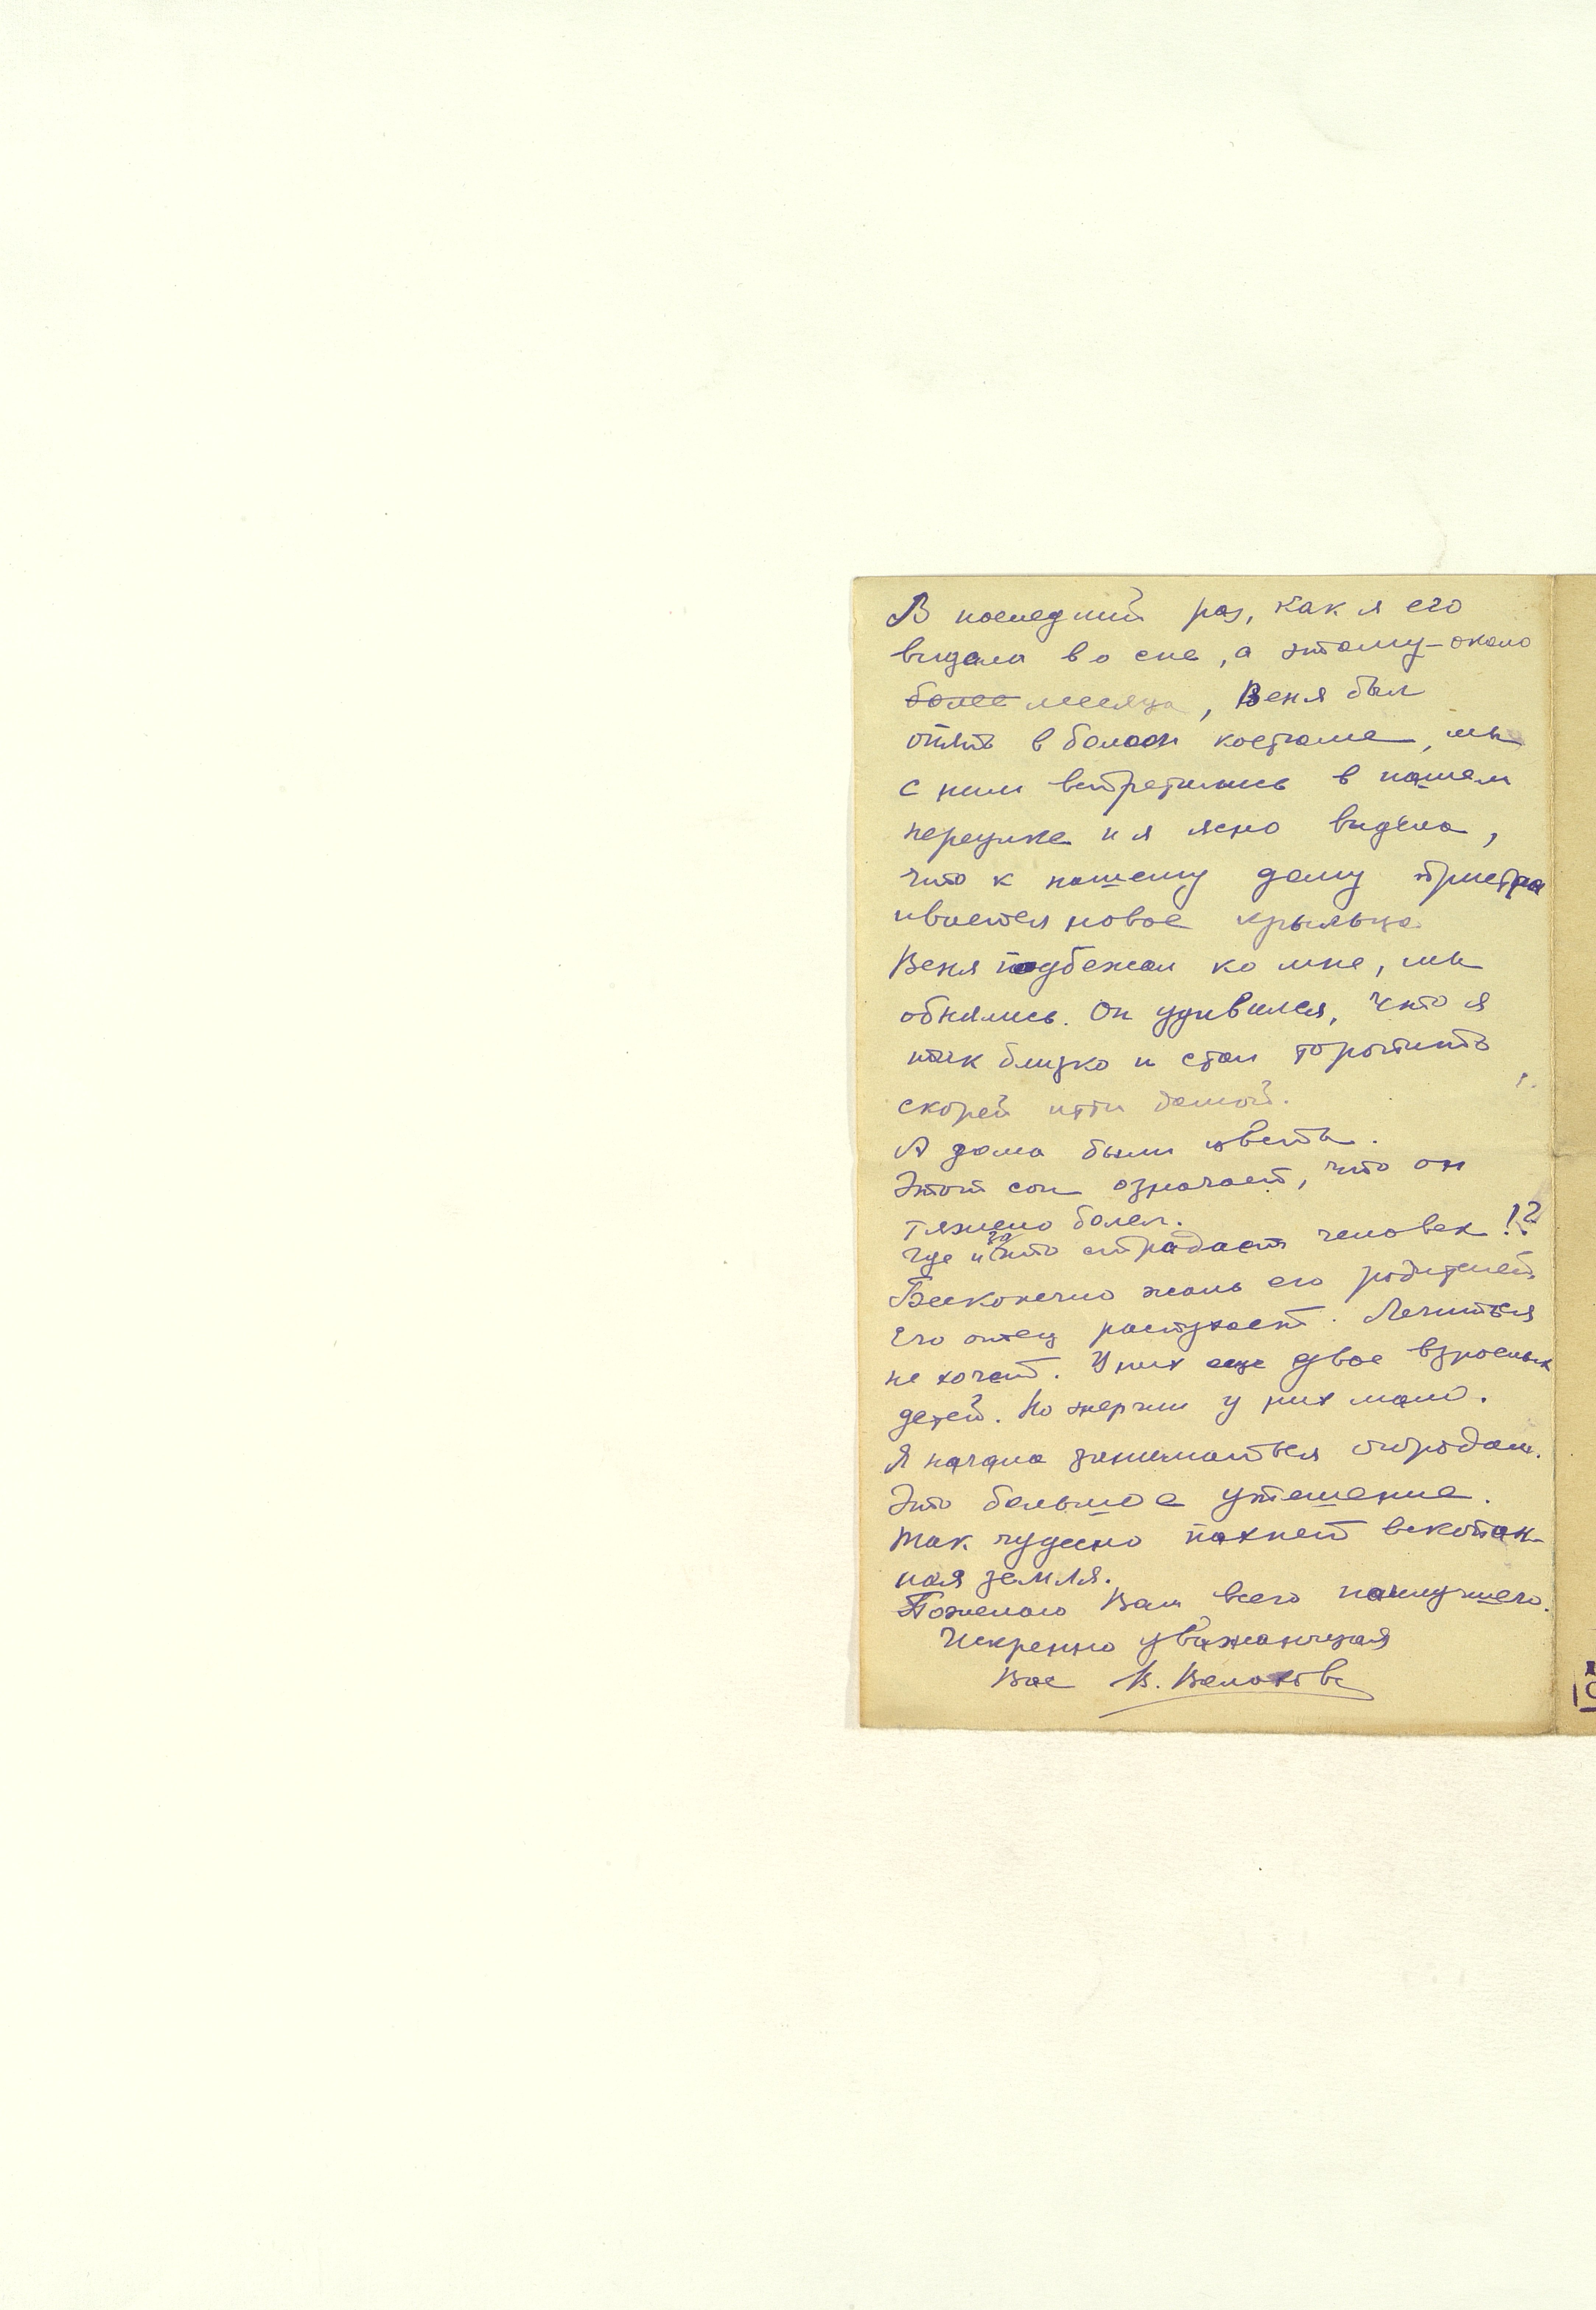 В последний раз, как я его
видела во сне, а этому – около
более месяца, Веня был
опять в белом костюме, мы
с ним встретились в нашем
переулке и я ясно видела,
что к нашему дому пристра
ивается новое крыльцо.
Веня подбежал ко мне, мы
обнялись. Он удивился, что я
так близко и стал торопить
скорей идти домой.
А дома были цветы.
Этот сон означает, что он
тяжело болел.
Где и за что страдает человек!?
Бесконечно жаль его родителей
Его отец распухает. Лечиться
не хочет. У них еще двое взрослых
детей. Но энергии у них мало.
Я начала заниматься огородом.
Это большое утешение.
Так чудесно пахнет вскопан-
ная земля.
Пожелаю Вам всего наилучшего.
Искренно уважающая
Вас В.